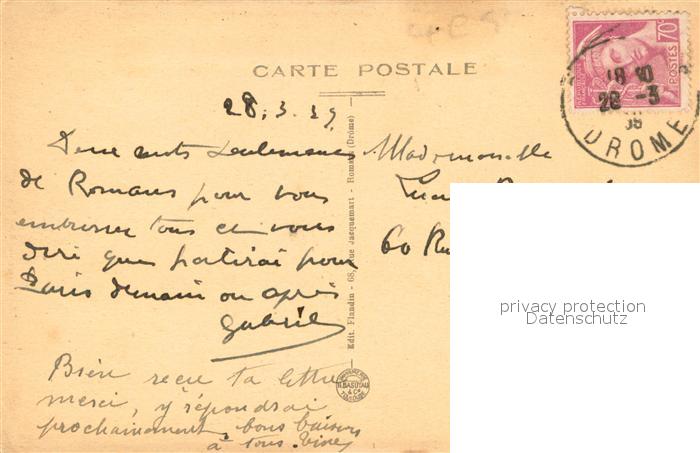 CARTE POSTALE
70c
POSTES
18 30
28 -3
39
DROME
28.3.39
Deux mots seulement
de Romans pour vous
embrasser tous et vous
dire que partirai pour
Paris demain ou après
Gabriel
Bien reçu ta lettre
merci, y répondrai
prochainement, bons baisers
à tous.
Mademoiselle
60 Ru
Edit. Flandin - 68, Rue Jacquemart - Romans (Drôme)
privacy protection
Datenschutz